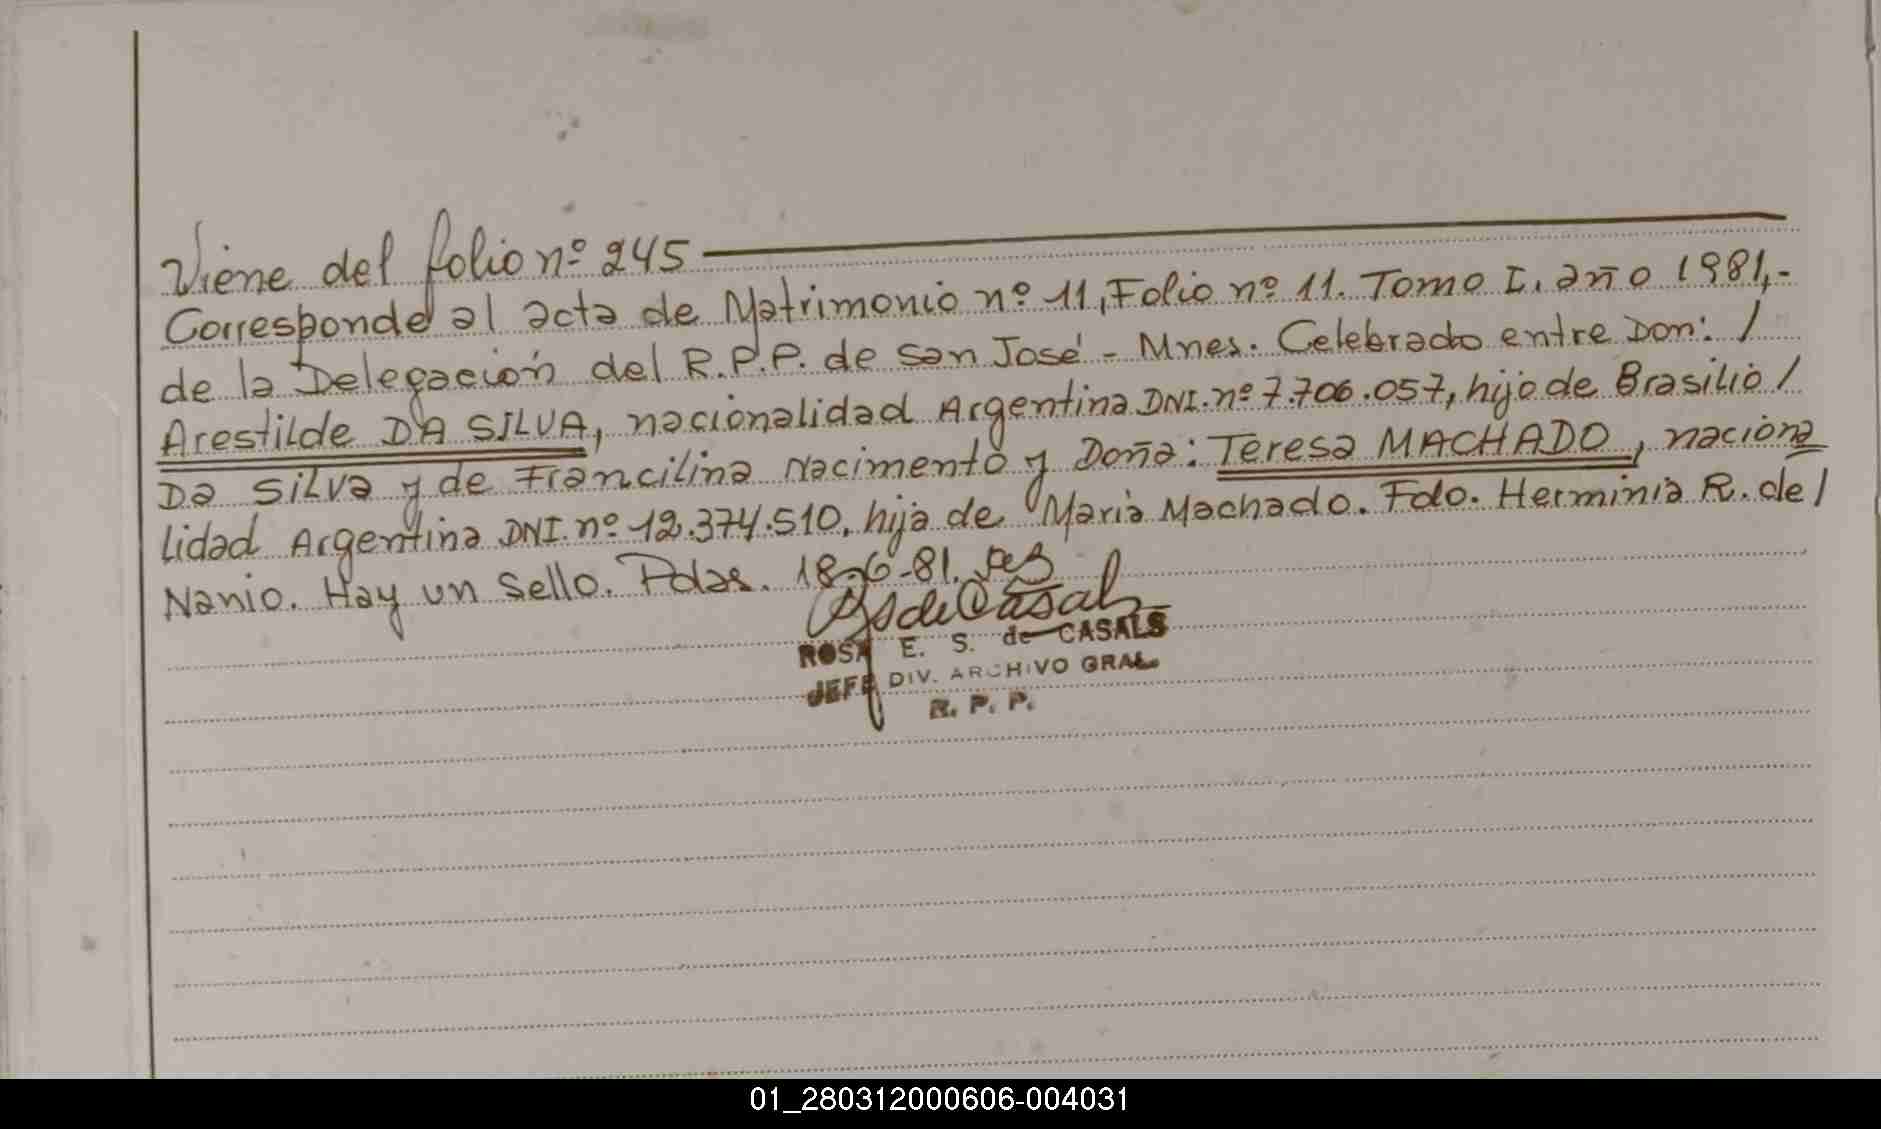 Viene del folio nº 245
Corresponde al acta de Matrimonio nº 11, Folio nº 11. Tomo I. año 1981,-
de la Delegación del R.P.P. de San José - Mnes. Celebrado entre Don: /
Arestilde DA SILVA, nacionalidad Argentina DNI. nº 7.706.057, hijo de Brasilio /
Da Silva y de Francilina Nacimento y Doña: Teresa MACHADO, naciona
lidad Argentina DNI. nº 12.374.510, hija de Maria Machado. Fdo. Herminia R. de /
Nanio. Hay un sello. Pdas. 18-6-81.
ROSA E. S. de CASALS
JEFE DIV. ARCHIVO GRAL.
R. P. P.
01_280312000606-004031